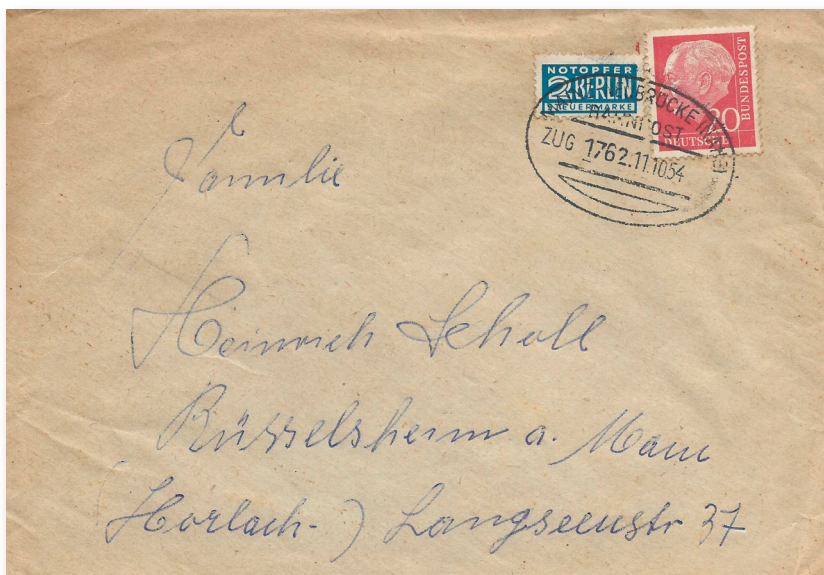 NOTOPFER
2 BERLIN
STEUERMARKE
DEUTSCHE
BUNDESPOST
20
BAHNPOST
ZUG 1762.11.1054
Familie
Heinrich Scholl
Rüsselsheim a. Main
(Horlach-) Langseenstr 37